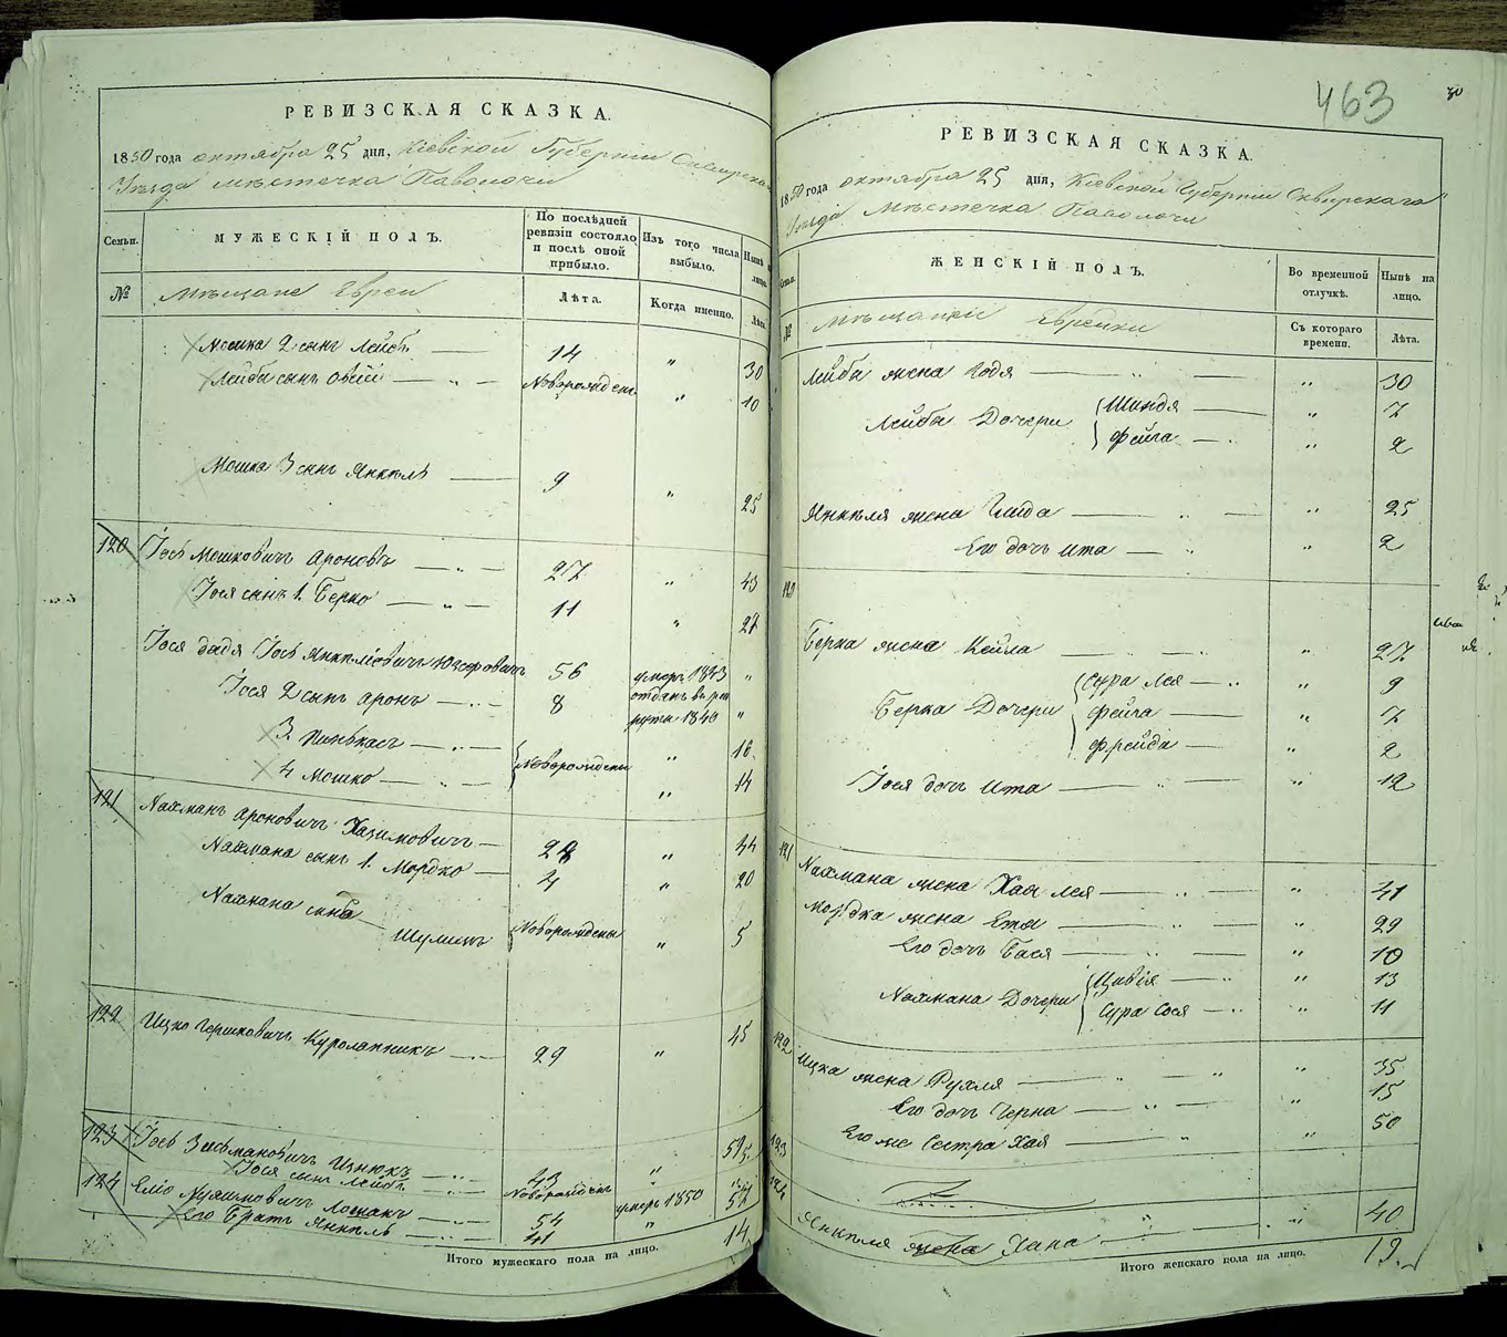 РЕВИЗСКАЯ СКАЗКА.
1850 года октября 25 дня, Кіевской Губерніи Сквирскаго
Уѣзда мѣстечка Паволочи
Семьи. МУЖЕСКІЙ ПОЛЪ. По послѣдней ревизіи состояло и послѣ оной прибыло. Изъ того числа выбыло. Нынѣ на лицо.
№ Мѣщане Евреи Лѣта. Когда именно. Лѣта.
Мошка 2 сынъ Лейба 14 " 30
Лейба сынъ Овсій Новорожден. " 10
Мошка 3 сынъ Янкель 9 " 25
120 Іось Мошковичъ Ароновъ 27 " 43
Іося сынъ 1. Берко 11 " 27
Іося дядя Іось Янкелiовичъ 56 умеръ 1843 "
Іося 2 сынъ Аронъ 8 отданъ в рекруты 1840 "
3. Пинькасъ " 16
4 Мошко Новорождены " 14
121 Нахманъ Ароновичъ Хаимовичъ 28 " 44
Нахмана сынъ 1. Мордко 4 " 20
Нахмана сынъ
Шулимъ Новорождены " 5
122 Ицко Гершковичъ Куролапникъ 29 " 45
123 Іось Зисьмановичъ 43 " 59
Іося сынъ Лейба Новорожденъ "
124 Еліо 54 умеръ 1850
Его Братъ Янкель 41 " 57
Итого мужескаго пола на лицо. 14
463
30
РЕВИЗСКАЯ СКАЗКА.
1850 года октября 25 дня, Кіевской Губерніи Сквирскаго
Уѣзда Мѣстечка Паволочи
Семьи. ЖЕНСКІЙ ПОЛЪ. Во временной отлучкѣ. Нынѣ на лицо.
№ Мѣщанки Еврейки Съ котораго времени. Лѣта.
Лейба жена Годя " 30
Лейба Дочери Шиндя " 7
Фейга " 2
Янкеля жена Гинда " 25
Его дочь Ита " 2
120
Берка жена Кейла " 27
Берка Дочери Сура Лея " 9
Фейга " 7
Фрейда " 2
Іося дочь Ита " 12
121
Нахмана жена Хая Лея " 41
Мордка жена Етя " 29
Его дочь Бася " 10
Нахмана Дочери Цивія " 13
Сура Сося " 11
122 Ицка жена Рухля " 35
Его дочь Черна " 15
Его же Сестра Хая " 50
123
124
Янкеля жена Хана " 40
Итого женскаго пола на лицо. 19.